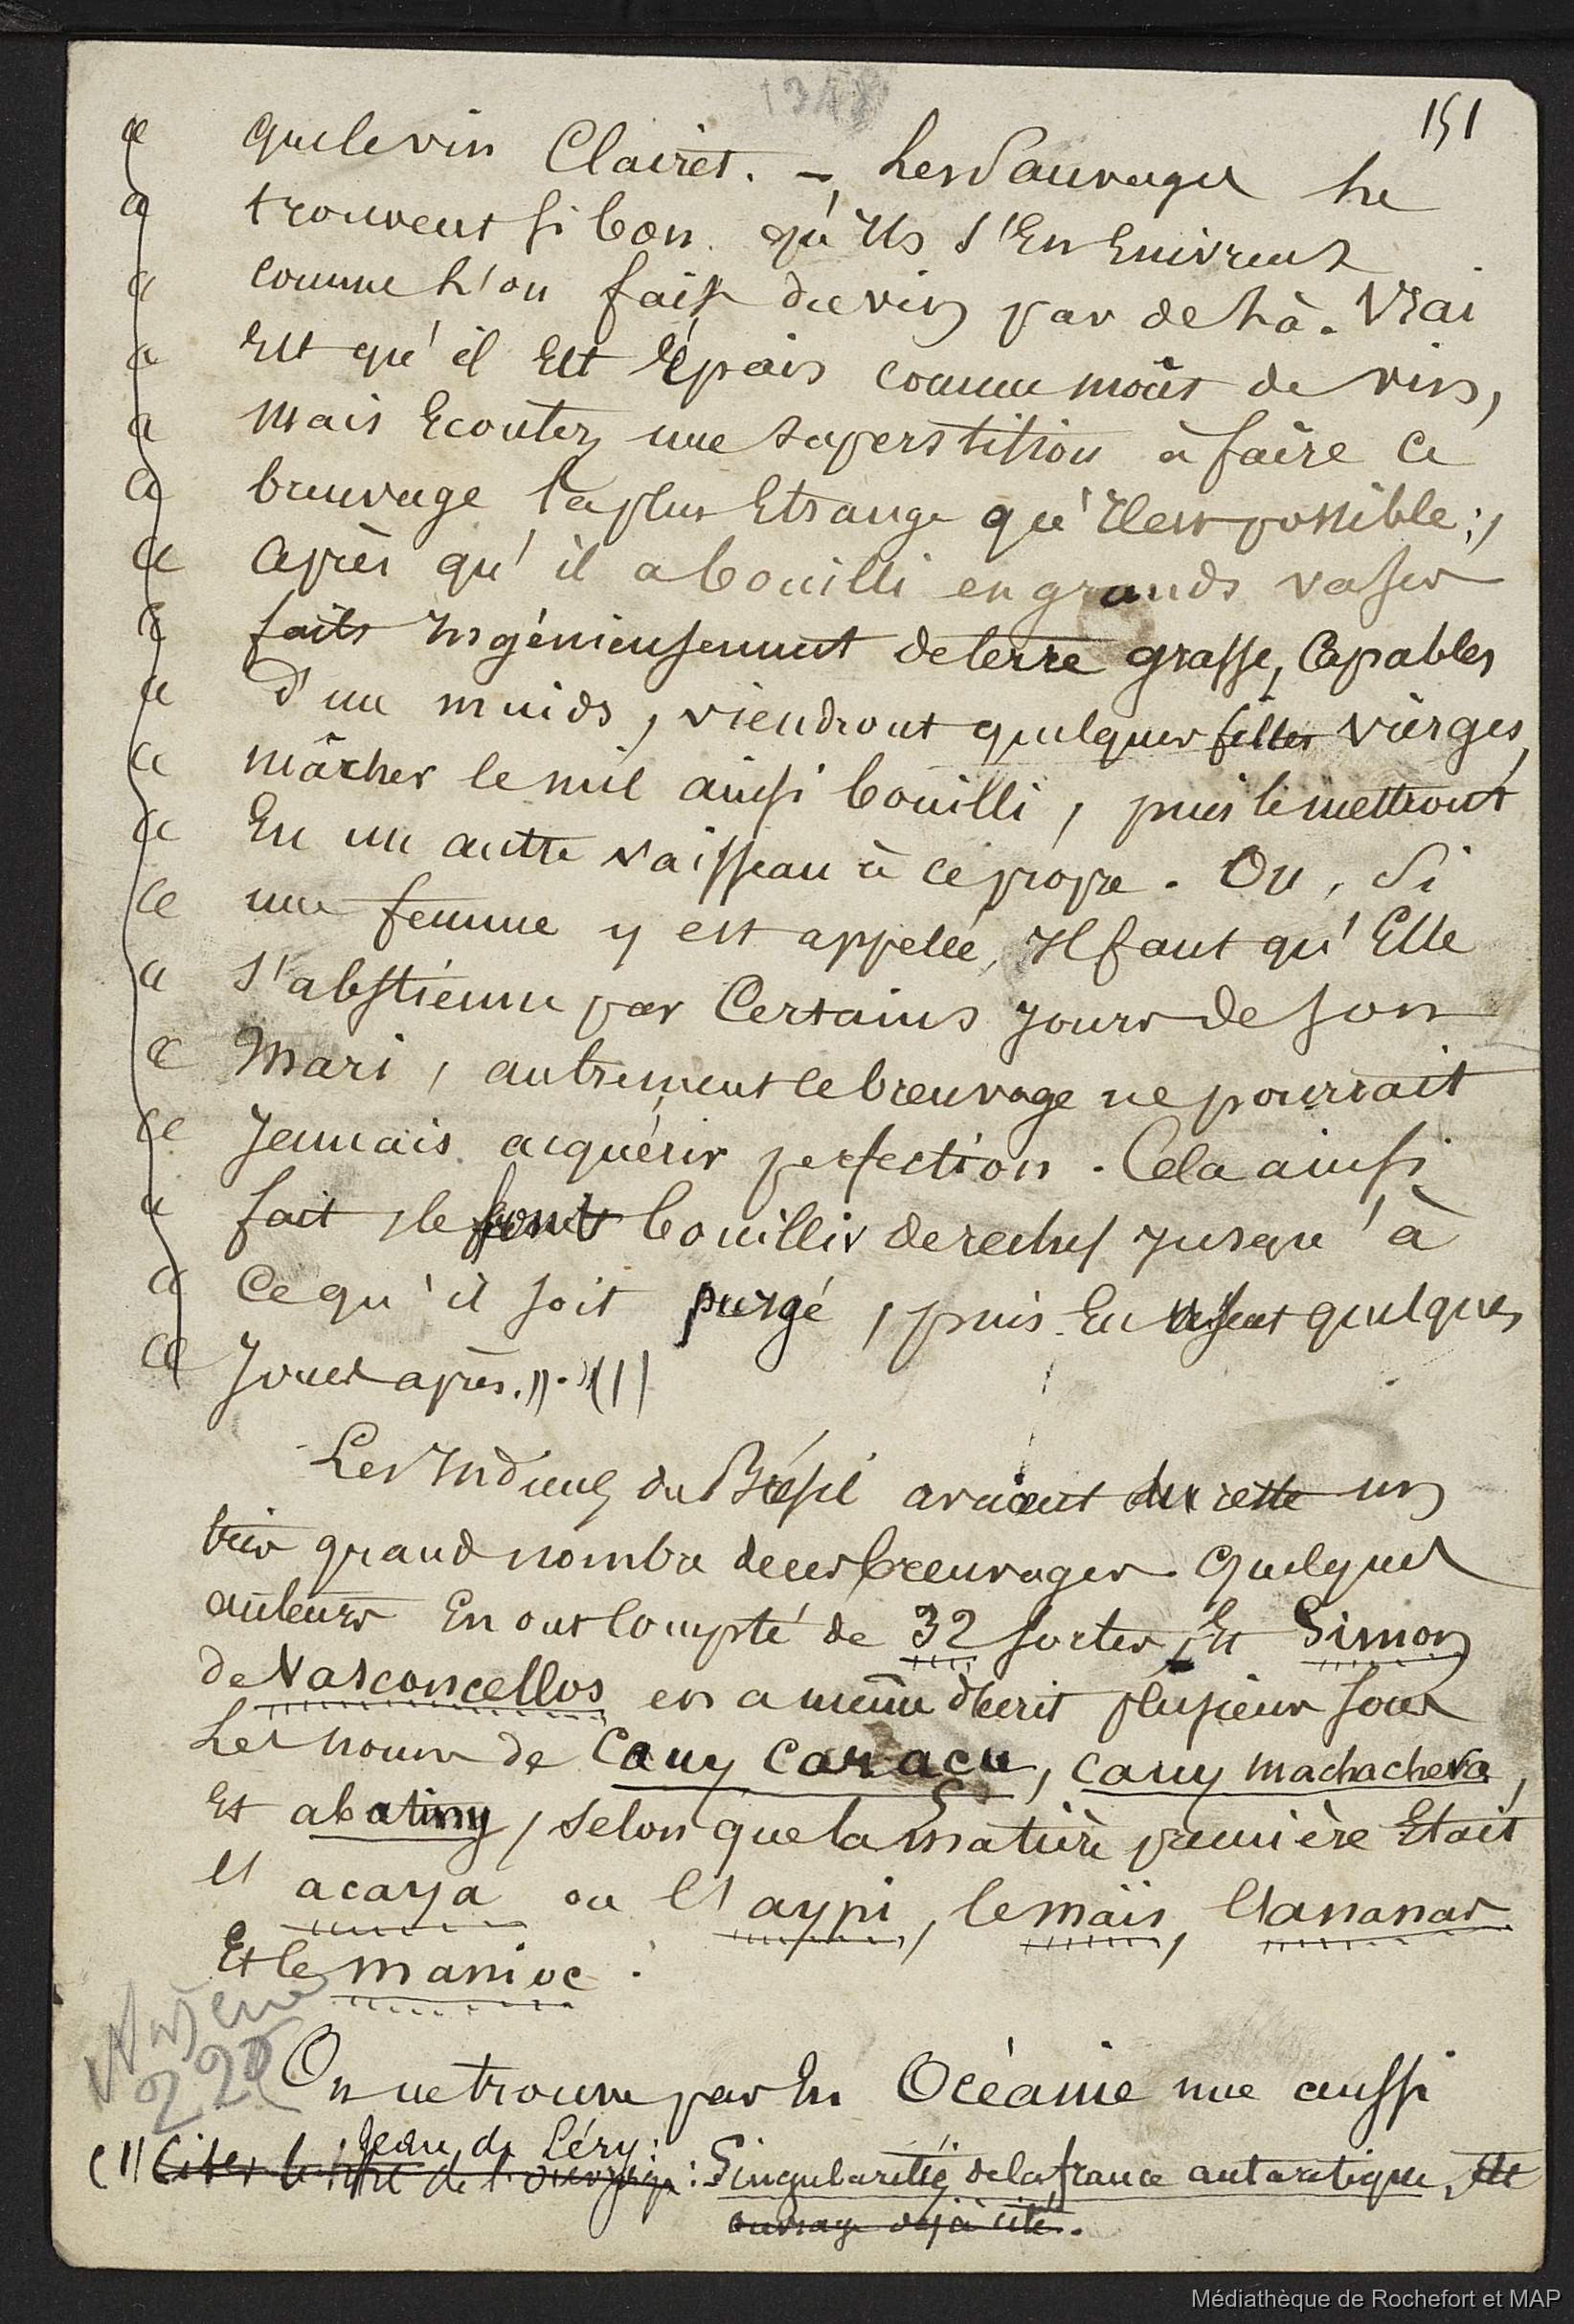 1348
151
« que le vin Clairet. — Les Sauvages le
« trouvent si bon qu'Ils s'En Enivrent
« comme l'on fait du vin par de là. Vrai
« Est qu'il Est Épais comme moût de vin,
« Mais Ecoutez une superstition à faire ce
« breuvage la plus Etrange qu'Il est possible ;,
« Après qu'il a bouilli en grands vases
« faits Ingénieusement de terre grasse, Capables
« d'un muids, viendront quelques filles vierges,
« mâcher le mil ainsi bouilli, puis le mettront
« En un autre vaisseau à ce propre. Ou, Si
« une femme y est appelée, Il faut qu'Elle
« s'abstienne par Certains Jours de son
« Mari, autrement le breuvage ne pourrait
« Jamais acquérir perfection. Cela ainsi
« fait, le font bouillir derechef Jusqu'à
« Ce qu'il soit purgé, puis En usent quelques
« Jours après. ». » (1)
Les Indiens du Brésil avaient du reste un
très grand nombre de ces breuvages. Quelques
auteurs En ont Compté de 32 sortes, Et Simon
de Vasconcellos en a même décrit plusieurs sous
Les noms de Cauy Caracu, Cauy machachera,
Et abatiny, selon que la Matière première Etait
l' acaya ou l'aypi, le maïs, l'ananas
Et le manioc.
225
On ne trouve pas En Océanie une aussi
Jean de Léry :
(1) Citer le titre de l'ouvrage : Singularitéz de la france antarctique, Et
ouvrage déjà cité.
Médiathèque de Rochefort et MAP